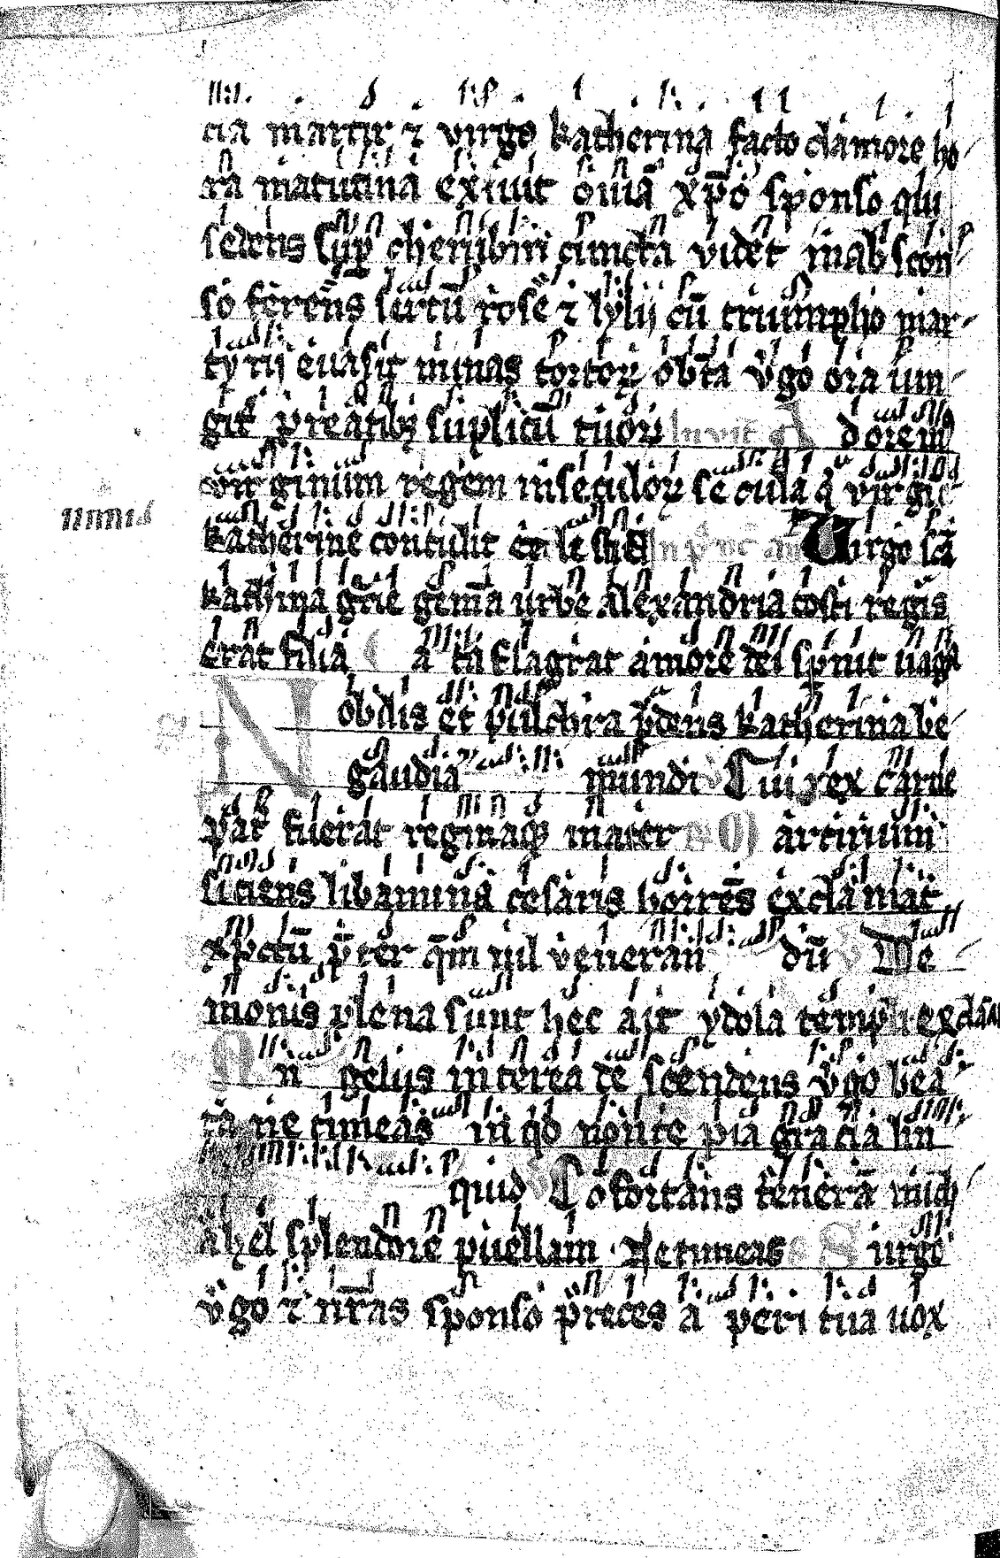 cia martir ⁊ virgo katherina facto clamore ho-
ra matutina exiuit ouiā xp̄o sponso qui
sedens sup cherubin cuncta videt in abscon-
so ferēns sertū rose ⁊ lylij cū triumpho mar-
tyrij euasit minas tortoꝝ obtā v̊go ora iun-
git p̄catibꝫ supplicū tuoꝝ Inuit A dorem
virginum regem in seculoꝝ secula q̄ virgi
nimis
katherine contulit celestia In p̊ noc̄ an Uirgo scā
kath̓ina gr̄cie gēma urbe Alexandria costi regis
erat filia a ta flagrat amore dei spreuit uaga
R̸ Nobilis et pulchra p̄dens katherina be-
gaudia mundi V Cui rex carne
pat̓ fuerat reginaqꝫ mater R̸ Martirium
siciens libamina cesaris horrēs exclamat
xp̄ctū p̄ter q̄m nil veneran dū V De-
monis plena sunt hec ait ydola templi exclam
An gelus interea descendens v̊go bea-
ta ne timeas in q̊d nouite pia gracia lin
quid V Cōfortans tenerā mich-
ahel splendore puellam Ne timeas R̸ Surge
v̊go ⁊ nr̄as sponso p̄reces a peri tua uox